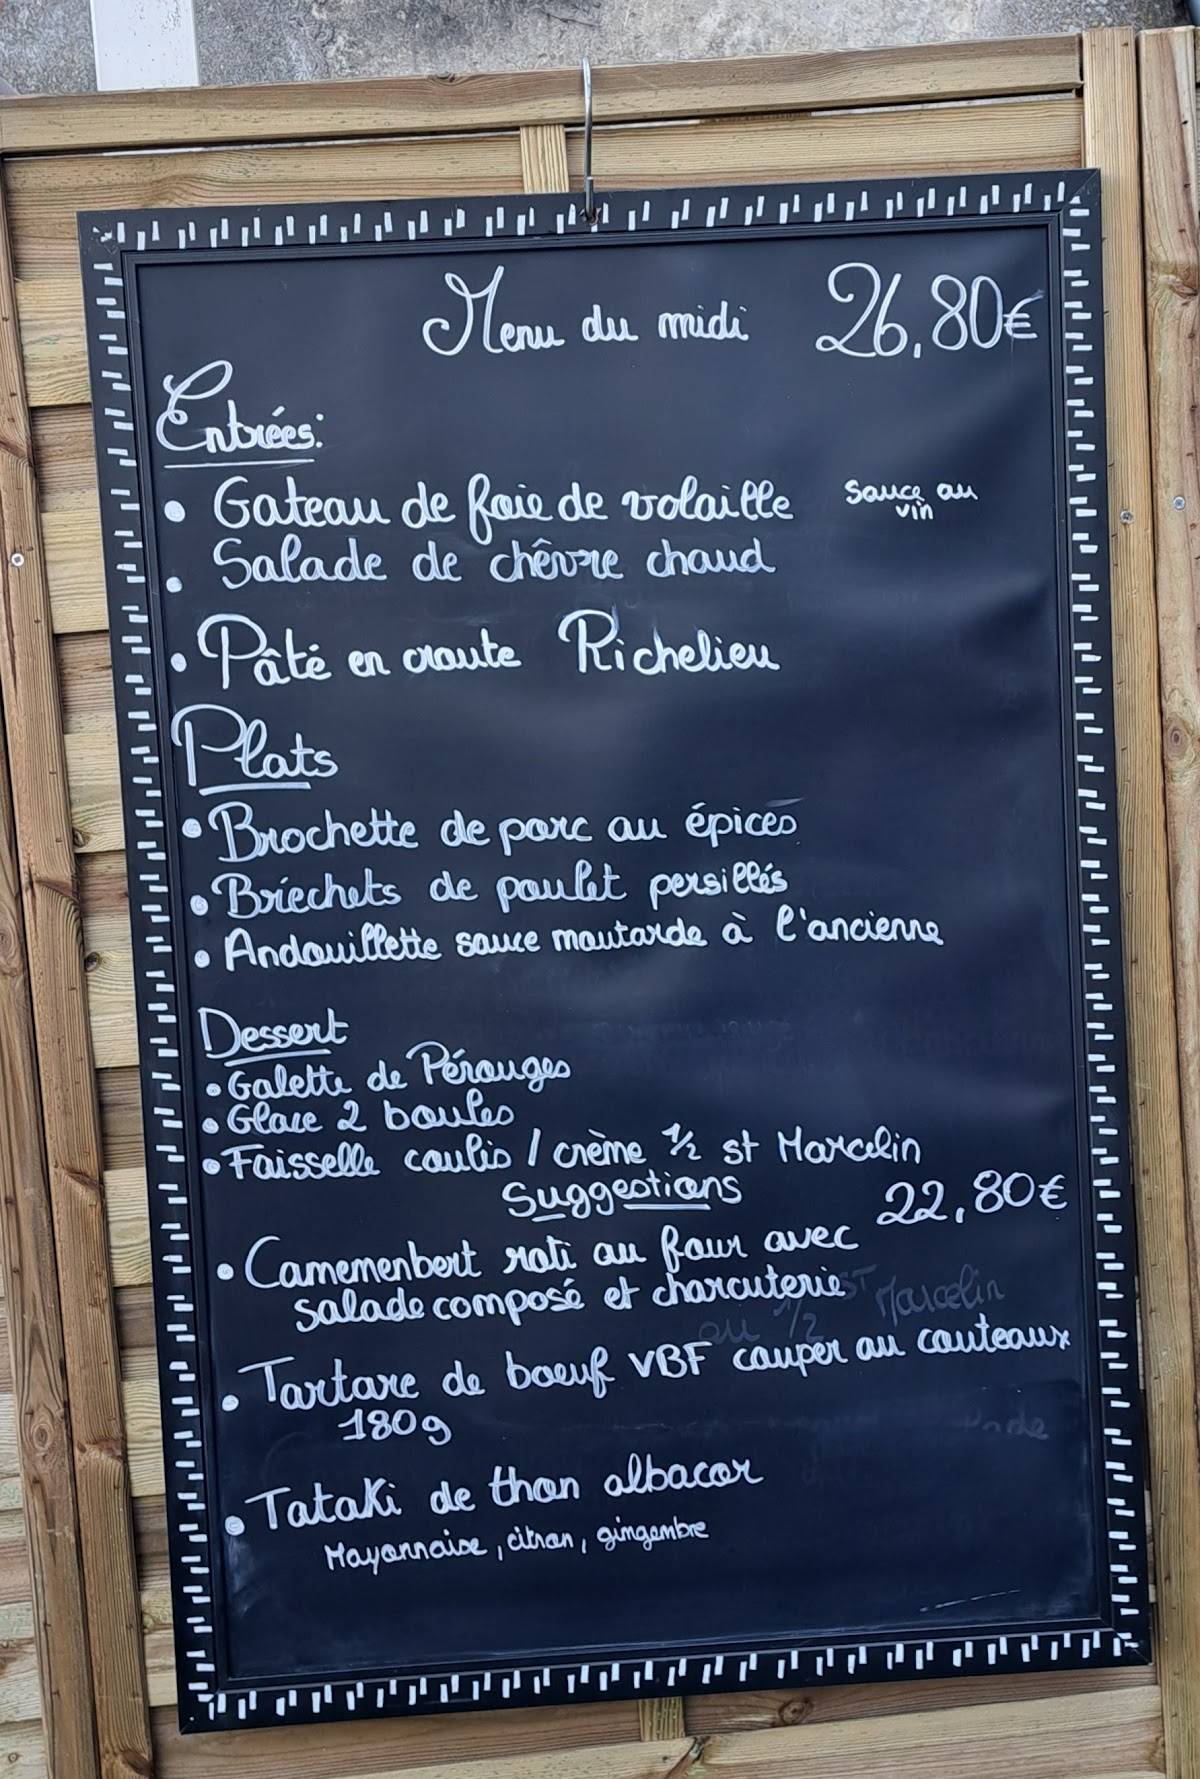 Menu du midi 26,80€
Entrées:
• Gateau de foie de volaille sauce au vin
• Salade de chêvre chaud
• Pâté en croute Richelieu
Plats
• Brochette de porc au épices
• Briechets de poulet persillés
• Andouillette sauce moutarde à l'ancienne
Dessert
• Galette de Pérouges
• Glace 2 boules
• Faisselle coulis / crème 1/2 st Marcelin
Suggestions 22,80€
• Camemenbert roti au four avec
salade composé et charcuterie
ST Marcelin
au 1/2
• Tartare de boeuf VBF couper au couteaux
180g
• Tataki de thon albacor
Mayonnaise, citron, gingembre